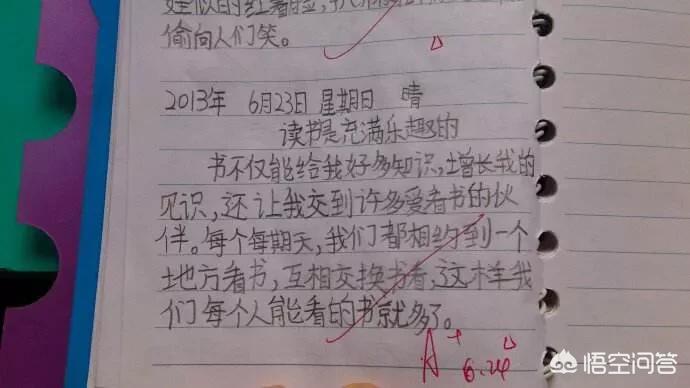 娃似的红着脸,
偷向人们笑。
2013年 6月23日 星期日 晴
读书是充满乐趣的
书不仅能给我好多知识,增长我的
见识,还让我交到许多爱看书的伙
伴。每个每期天,我们都相约到一个
地方看书,互相交换书看,这样我
们每个人能看的书就多了。
A+
6.24
悟空问答